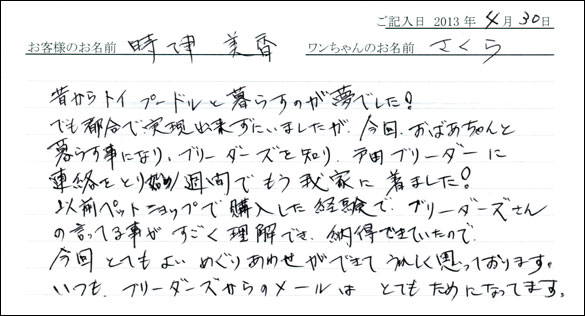 ご記入日 2013 年 4 月 30 日
お客様のお名前 時津 美香 ワンちゃんのお名前 さくら
昔からトイプードルと暮らすのが夢でした!
でも都合で実現出来ずにいましたが、今回、おばあちゃんと
暮らす事になり、ブリーダーズを知り、戸田ブリーダーに
連絡をとり始め1週間でもう我家に着ました!
以前ペットショップで購入した経験で、ブリーダーズさん
の言ってる事がすごく理解でき、納得できていたので、
今回とてもよいめぐりあわせができてうれしく思っております。
いつも、ブリーダーズからのメールはとてもためになってます。